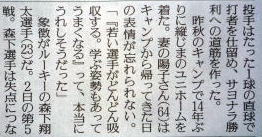 投手はたった1球の直球で
打者を仕留め、サヨナラ勝
利への道筋を作った。
昨秋のキャンプで14年ぶ
りに縦じまのユニホームを
着た。妻の陽子さん(64)は
キャンプから帰ってきた日
の表情が忘れられない。
「『若い選手がどんどん吸
収する。学ぶ姿勢もあって
うまくなる』って、本当に
うれしそうだった」
象徴がルーキーの森下翔
太選手(23)だ。2日の第5
戦。森下選手は失点につな